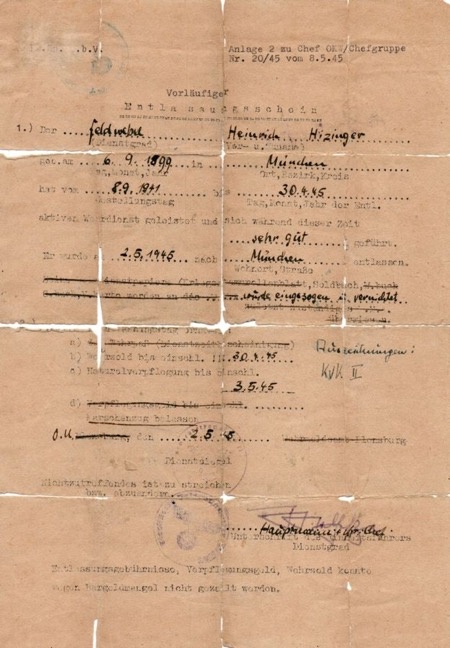 b.V. Anlage 2 zu Chef OKW/Chefgruppe
Nr. 20/45 vom 8.5.45
Vorläufiger
Entlassungsschein
1.) Der Feldwebel Heinrich Hizinger
(Dienstgrad) (Vor- u. Zuname)
geb. am 6.9.1899 in München
Tag, Monat, Jahr Ort, Bezirk, Kreis
hat vom 8.9.1941 bis 30.4.45
Tag, Monat, Jahr der Entl.
aktiven Wehrdienst geleistet und sich während dieser Zeit
sehr gut geführt.
Er wurde am 2.5.1945 nach München entlassen.
Wohnort, Straße
Soldbuch,
wurde eingezogen u. vernichtet
a)
b) Wehrsold bis einschl. 30.4.45
Auszeichnungen:
c) Naturalverpflegung bis einschl.
KVK II
3.5.45
d) Verpflegungsgeld bis einschl.
Marschanzug belassen
O.U. den 2.5.45 Flensburg
Dienstsiegel
Nichtzutreffendes ist zu streichen
bzw. abzuändern.
Hauptmann
Unterschrift
Dienstgrad
Entlassungsgebührnisse, Verpflegungsgeld, Wehrsold konnte
wegen Bargeldmangel nicht gezahlt werden.